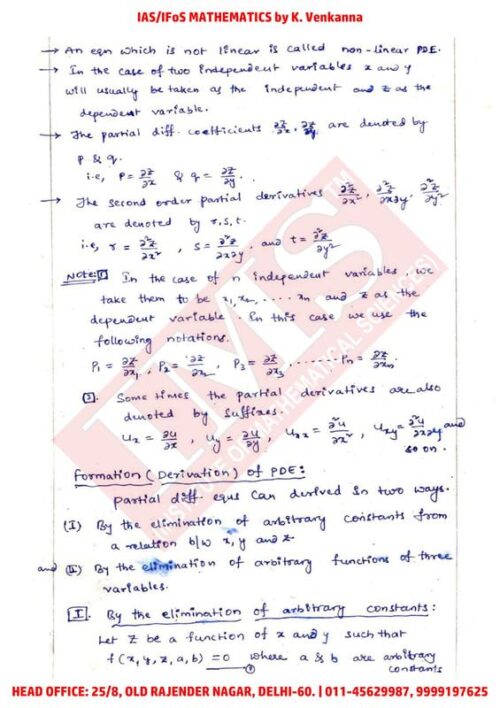 IAS/IFoS MATHEMATICS by K. Venkanna
→ An eqn which is not linear is called non-linear PDE.
→ In the case of two independent variables x and y
will usually be taken as the independent and z as the
dependent variable.
→ The partial diff. coefficients ∂z/∂x, ∂z/∂y are denoted by
p & q.
i.e, P = ∂z/∂x & q = ∂z/∂y.
→ The second order partial derivatives ∂²z/∂x², ∂²z/∂x∂y, ∂²z/∂y²
are denoted by r, s, t.
i.e, r = ∂²z/∂x², s = ∂²z/∂x∂y, and t = ∂²z/∂y²
NOTE: 1 In the case of n independent variables, we
take them to be x₁, x₂, ..... xn and z as the
dependent variable. In this case we use the
following notations.
P₁ = ∂z/∂x₁, P₂ = ∂z/∂x₂, P₃ = ∂z/∂x₃, ...... Pn = ∂z/∂xn.
2. Some times the partial derivatives are also
denoted by suffixes.
Ux = ∂u/∂x, Uy = ∂u/∂y, Uxx = ∂²u/∂x², Uxy = ∂²u/∂x∂y and
so on.
Formation (Derivation) of PDE:
Partial diff. equs can derived in two ways.
(I) By the elimination of arbitrary constants from
a relation b/w x, y and z.
and (II) By the elimination of arbitrary functions of three
variables.
I. By the elimination of arbitrary constants:
Let z be a function of x and y such that
f(x, y, z, a, b) = 0 where a & b are arbitrary
①
constants
IMS
INSTITUTE OF MATHEMATICAL SCIENCES
TM
HEAD OFFICE: 25/8, OLD RAJENDER NAGAR, DELHI-60. | 011-45629987, 9999197625